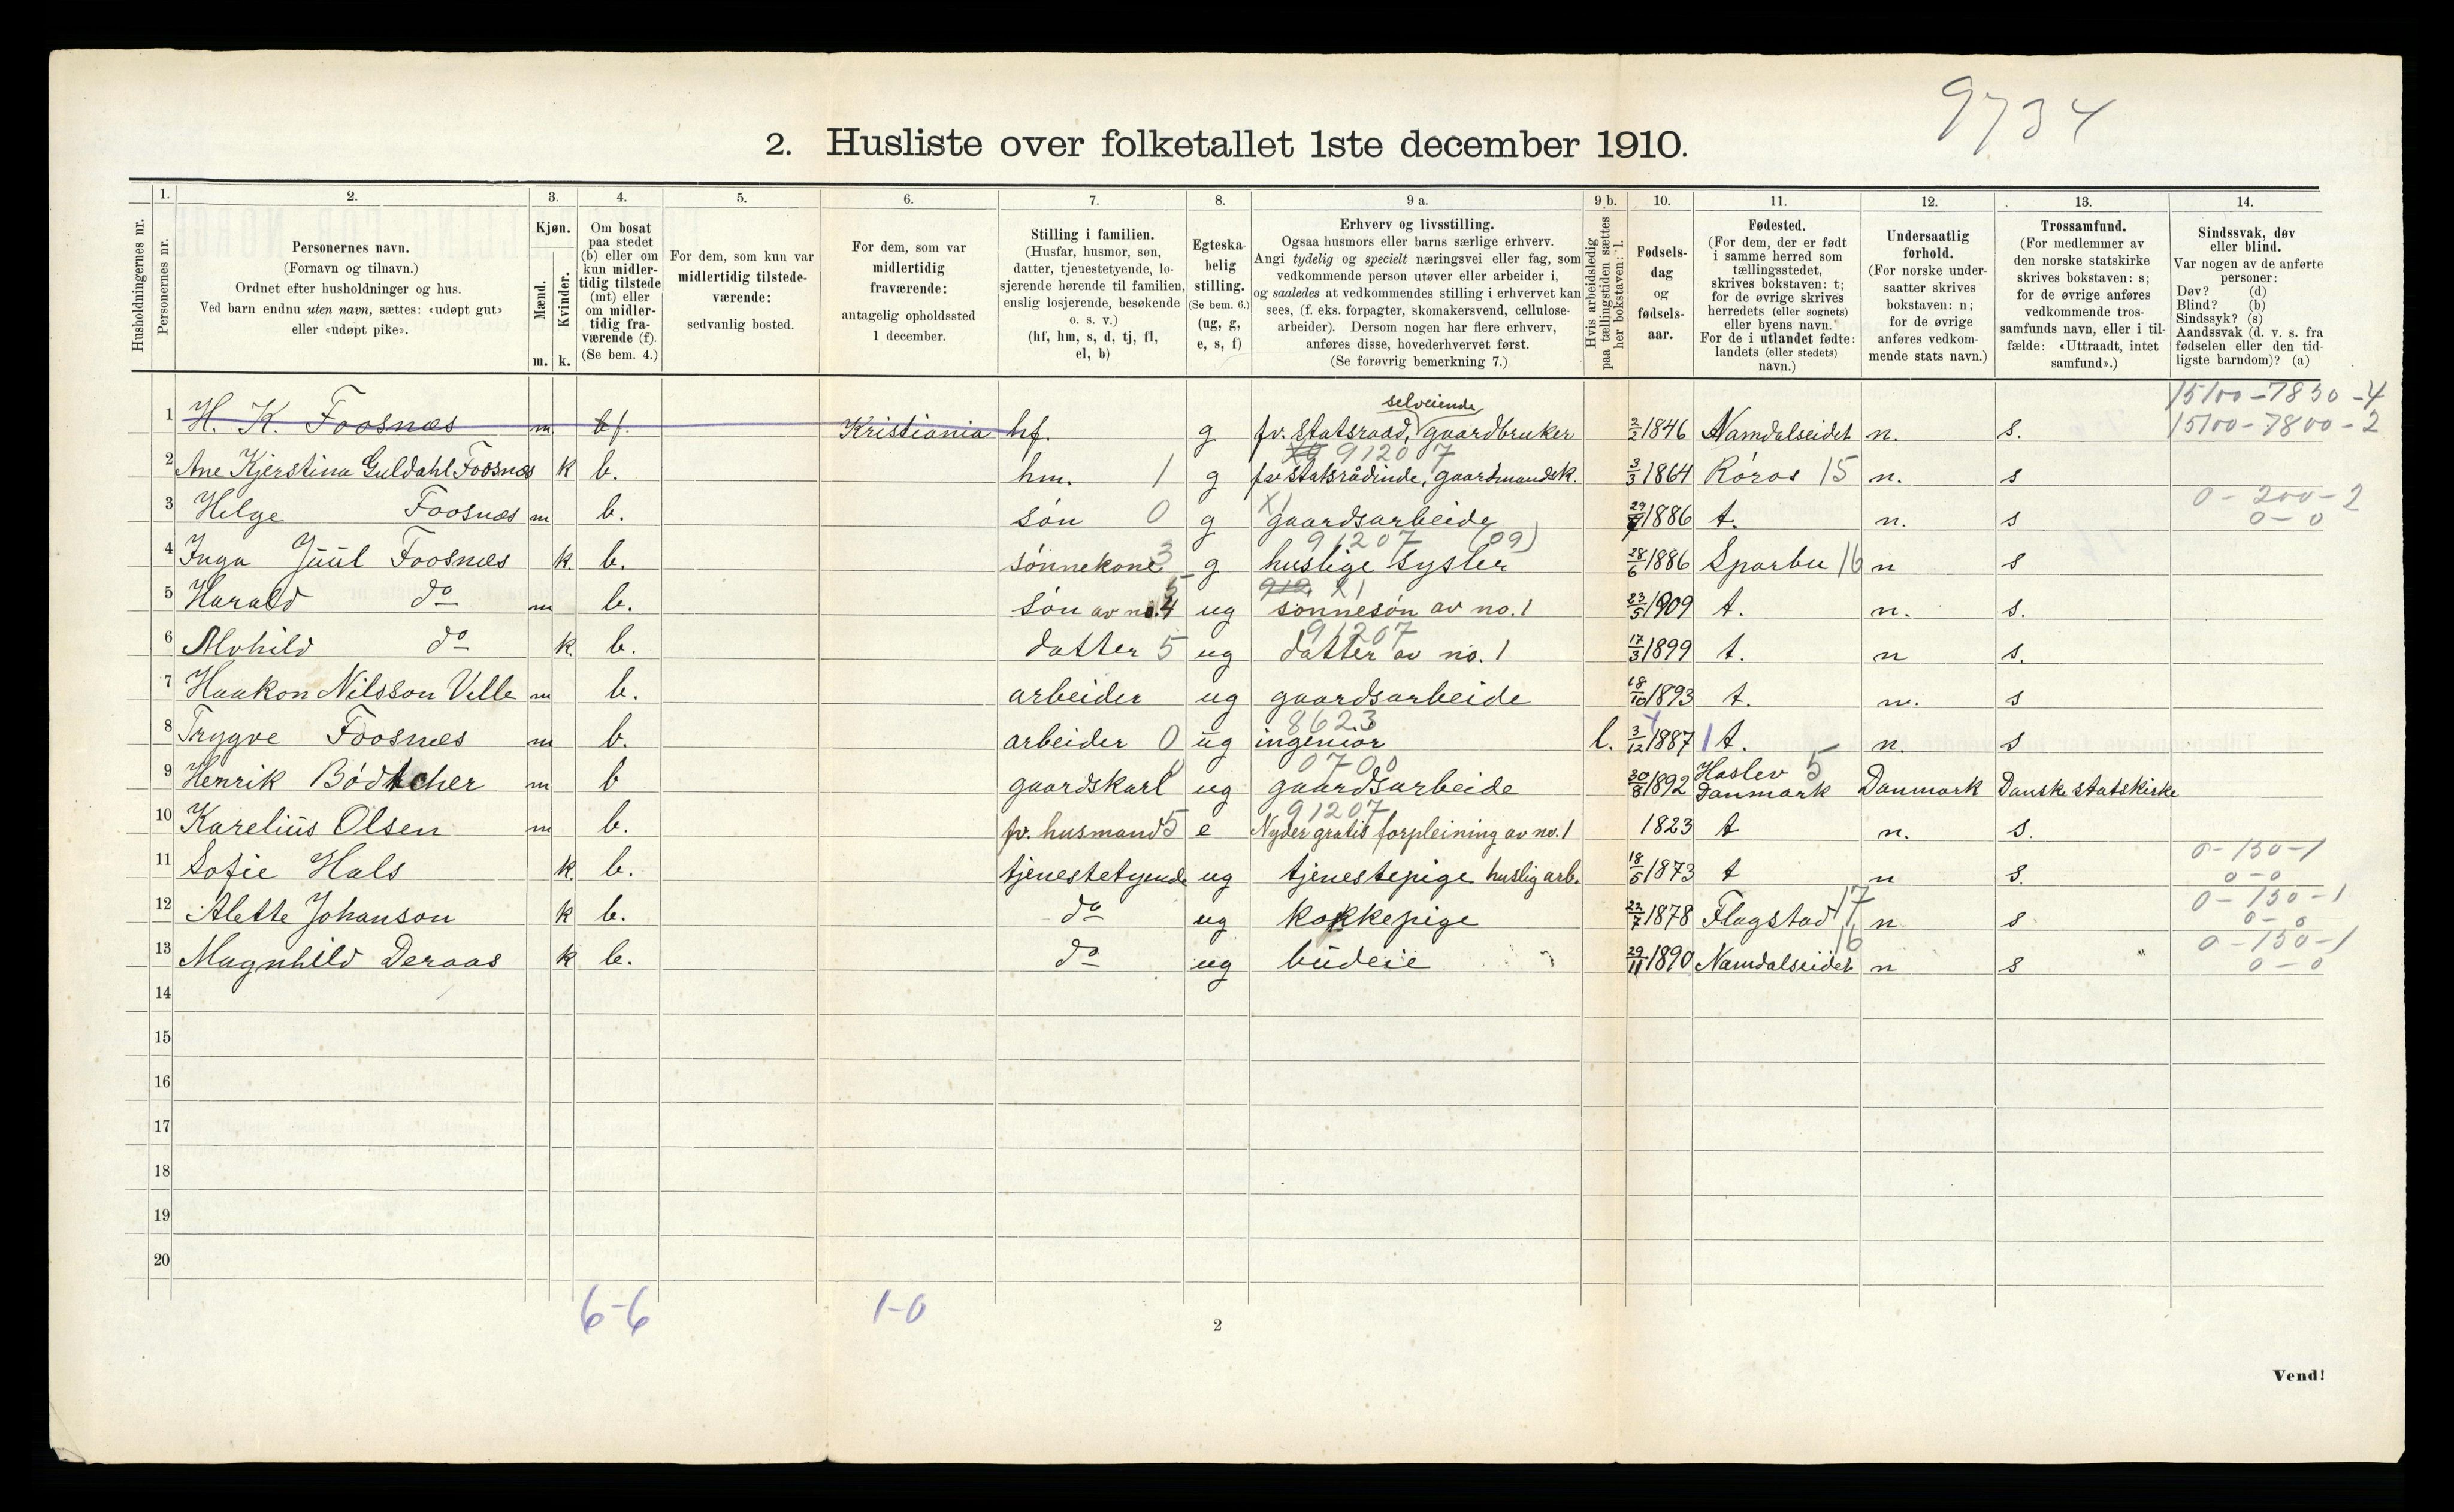 9734
2. Husliste over folketallet 1ste december 1910.
Husholdningernes nr.
1. Personernes nr.
2. Personernes navn. (Fornavn og tilnavn.) Ordnet efter husholdninger og hus. Ved barn endnu uten navn, sættes: «udøpt gut» eller «udøpt pike».
3. Kjøn. Mænd. m. Kvinder. k.
4. Om bosat paa stedet (b) eller om kun midlertidig tilstede (mt) eller om midlertidig fraværende (f). (Se bem. 4.)
5. For dem, som kun var midlertidig tilstedeværende: sedvanlig bosted.
6. For dem, som var midlertidig fraværende: antagelig opholdssted 1 december.
7. Stilling i familien. (Husfar, husmor, søn, datter, tjenestetyende, losjerende hørende til familien, enslig losjerende, besøkende o. s. v.) (hf, hm, s, d, tj, fl, el, b)
8. Egteskabelig stilling. (Se bem. 6.) (ug, g, e, s, f)
9 a. Erhverv og livsstilling. Ogsaa husmors eller barns særlige erhverv. Angi tydelig og specielt næringsvei eller fag, som vedkommende person utøver eller arbeider i, og saaledes at vedkommendes stilling i erhvervet kan sees, (f. eks. forpagter, skomakersvend, cellulosearbeider). Dersom nogen har flere erhverv, anføres disse, hovederhvervet først. (Se forøvrig bemerkning 7.)
9 b. Hvis arbeidsledig paa tællingstiden sættes her bokstaven: l.
10. Fødselsdag og fødselsaar.
11. Fødested. (For dem, der er født i samme herred som tællingsstedet, skrives bokstaven: t; for de øvrige skrives herredets (eller sognets) eller byens navn. For de i utlandet fødte: landets (eller stedets) navn.)
12. Undersaatlig forhold. (For norske undersaatter skrives bokstaven: n; for de øvrige anføres vedkommende stats navn.)
13. Trossamfund. (For medlemmer av den norske statskirke skrives bokstaven: s; for de øvrige anføres vedkommende trossamfunds navn, eller i tilfælde: «Uttraadt, intet samfund».)
14. Sindssvak, døv eller blind. Var nogen av de anførte personer: Døv? (d) Blind? (b) Sindssyk? (s) Aandssvak (d. v. s. fra fødselen eller den tidligste barndom)? (a)
15100-7830-4
1 H. K. Foosnæs m. bf. Kristiania hf. g fv. Statsraad, selveiende gaardbruker 2/2 1846 Namdalseidet n. s. 15100-7800-2
9120 7
2 Ane Kjerstina Guldahl Foosnæs k b. hm. 1 g fv statsrådinde, gaardmandsk. 3/3 1864 Røros 15 n. s
0-200-2
3 Helge Foosnæs m b. søn 0 g X1 gaardsarbeide 1886 t. n. s 0-0
91207 (09)
4 Inga Juul Foosnæs k. b. sønnekone 3 g huslige sysler 28/6 1886 Sparbu 16 n s
5 Harald do m b. søn av no. 4 5 ug sønnesøn av no. 1 23/5 1909 t. n. s.
91207
6 Alvhild do k. b. datter 5 ug datter av no. 1 17/3 1899 t. n s.
7 Haakon Nilsson Velle m b. arbeider ug gaardsarbeide 18/10 1893 t. n. s
8623
8 Trygve Foosnæs m b. arbeider 0 ug ingeniør l. 3/12 1887 t. n. s
0700
9 Henrik Bødtcher m b gaardskarl ug gaardsarbeide 30/8 1892 Haslev Danmark 5 Danmark Danske statskirke
91207
10 Karelius Olsen m b. fv. husmand 5 e Nyder gratis forpleining av no. 1 1823 t n. s.
0-150-1
11 Sofie Hals k. b. tjenestetyende ug tjenestepige huslig arb. 18/5 1873 t n s. 0-0
0-150-1
12 Alette Johanson k b. do ug kokkepige 22/7 1878 Flagstad 17 n s 0-0
0-150-1
13 Magnhild Deraas k b. do ug budeie 29/11 1890 Namdalseidet 16 n s 0-0
14
15
16
17
18
19
20
6-6 1-0
2
Vend!